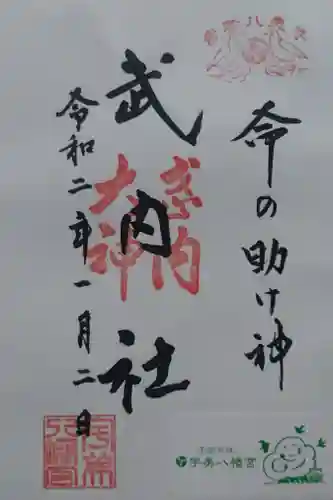 命の助け神
武内社
武内
大神
令和二年一月二日
宇美八幡宮